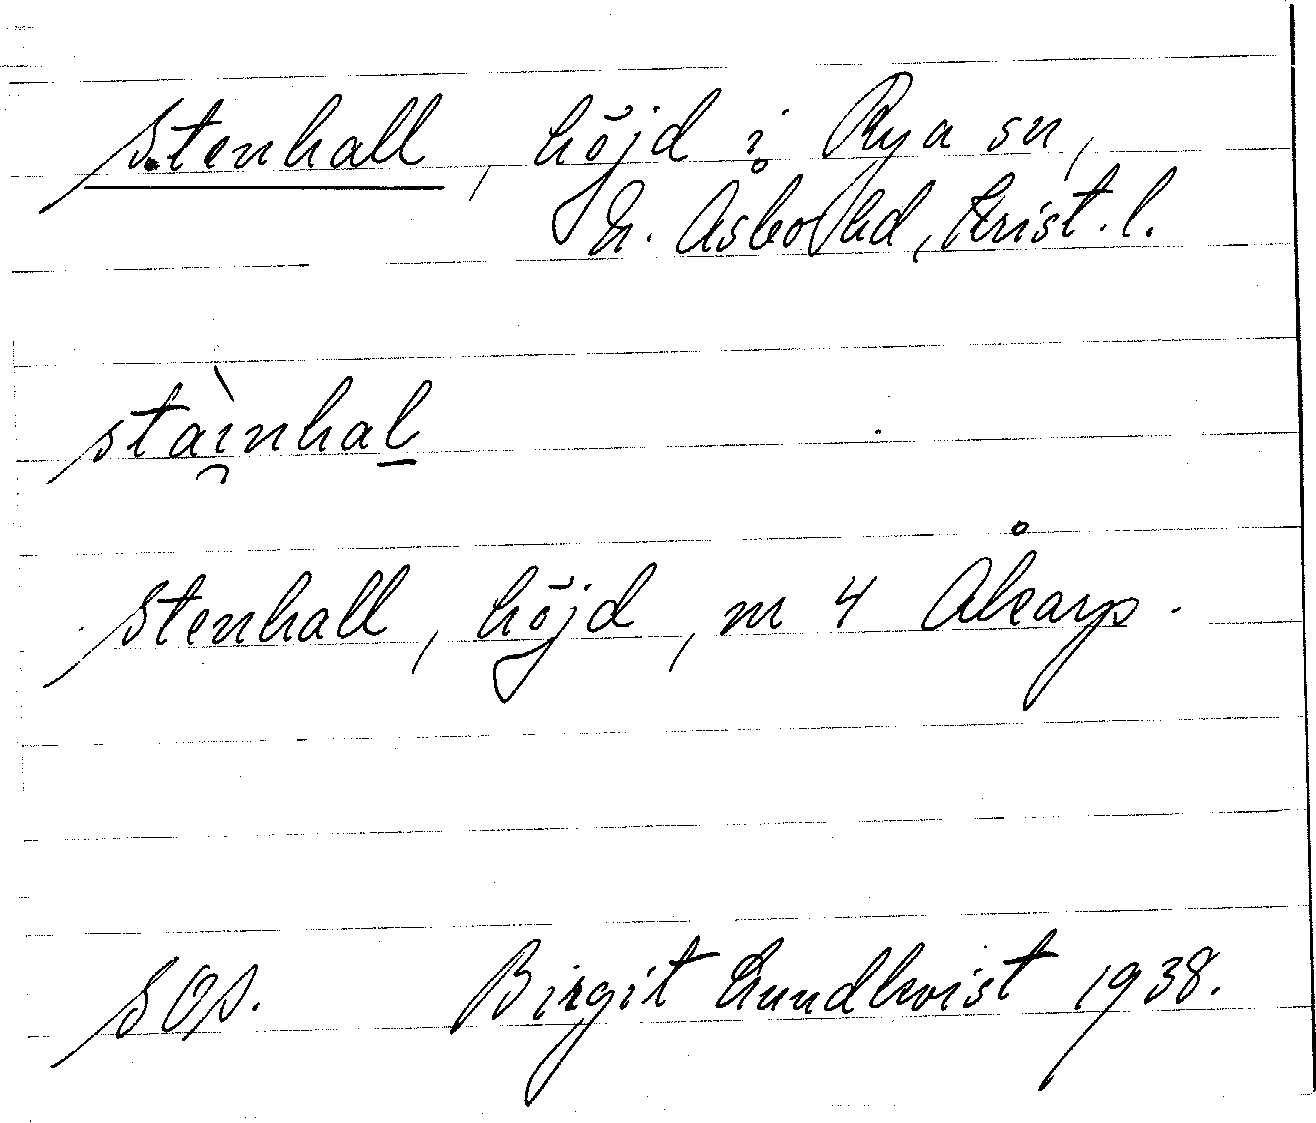 Stenhall, höjd i Rya sn,
N. Åsbo hd, Krist. l.
stài̯nhal̲
Stenhall, höjd, m 4 Åkarp.
SOS. Birgit Lundkvist 1938.